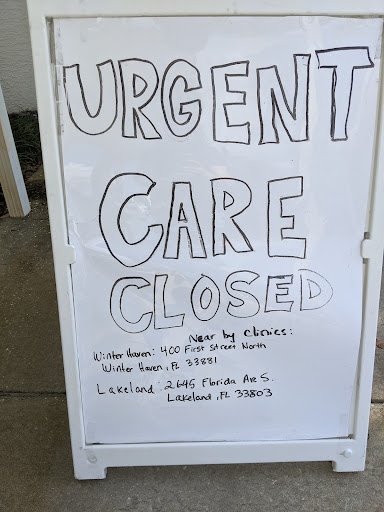 URGENT
CARE
CLOSED
Near by Clinics:
Winter Haven: 400 First Street North
Winter Haven, FL 33881
Lakeland: 2645 Florida Ave S.
Lakeland, FL 33803